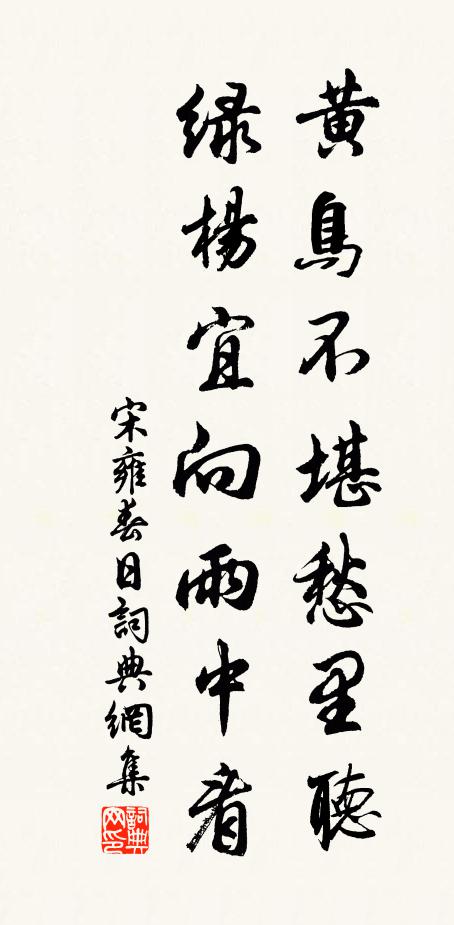 黄鳥不堪愁里聽
緑楊宜向雨中看
宋雍春日詞典網集
詞典网印